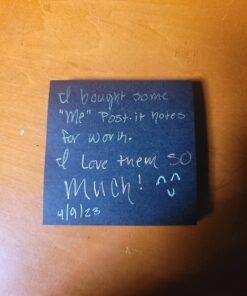 I bought some
"Me" Post-it notes
for work.
I Love them SO
much! ^^
4/9/23